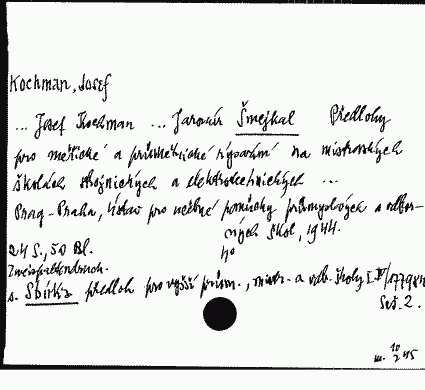 Kochman, Josef
... Josef Kochman ... Jaromír Šmejkal Předlohy
pro měřické a průmětnické rýsování na mistrovských
školách strojnických a elektrotechnických ...
Prag-Praha, Ústav pro učebné pomůcky průmyslových a odbor-
ných škol, 1944.
24 S., 50 Bl. 4°
Zweisprachendruck.
s. Sbírka předloh pro vyšší prům., mistr. a odb. školy
Seš. 2.